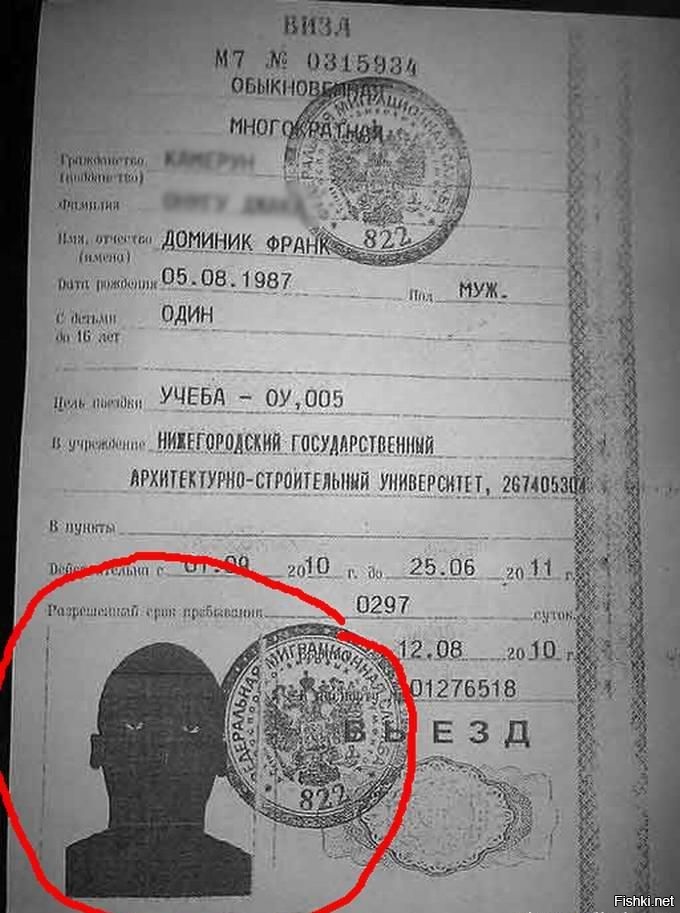 ВИЗА
М7 № 0315934
ОБЫКНОВЕННАЯ
МНОГОКРАТНАЯ
Гражданство КАМЕРУН
(подданство)
Фамилия
Имя, отчество ДОМИНИК ФРАНК
(имена)
Дата рождения 05.08.1987 Пол МУЖ.
С детьми ОДИН
до 16 лет
Цель поездки УЧЕБА - ОУ,005
В учреждение НИЖЕГОРОДСКИЙ ГОСУДАРСТВЕННЫЙ
АРХИТЕКТУРНО-СТРОИТЕЛЬНЫЙ УНИВЕРСИТЕТ, 267405304
В пункты
Действительна с 01.09 2010 г. до 25.06 2011 г.
Разрешенный срок пребывания 0297 суток
12.08 2010 г.
01276518
ВЪЕЗД
ФЕДЕРАЛЬНАЯ МИГРАЦИОННАЯ СЛУЖБА
822
ФЕДЕРАЛЬНАЯ МИГРАЦИОННАЯ СЛУЖБА
822
Fishki.net